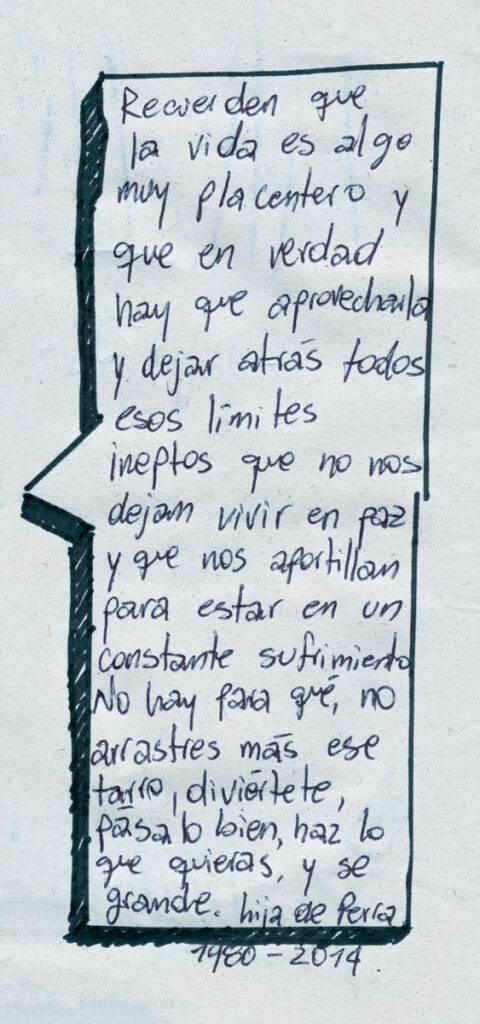 Recuerden que
la vida es algo
muy placentero y
que en verdad
hay que aprovecharla
y dejar atrás todos
esos límites
ineptos que no nos
dejan vivir en paz
y que nos aportillan
para estar en un
constante sufrimiento
No hay para qué, no
arrastres más ese
tarro, diviértete,
pásalo bien, haz lo
que quieras, y se
grande. hija de Perra
1980 - 2014.